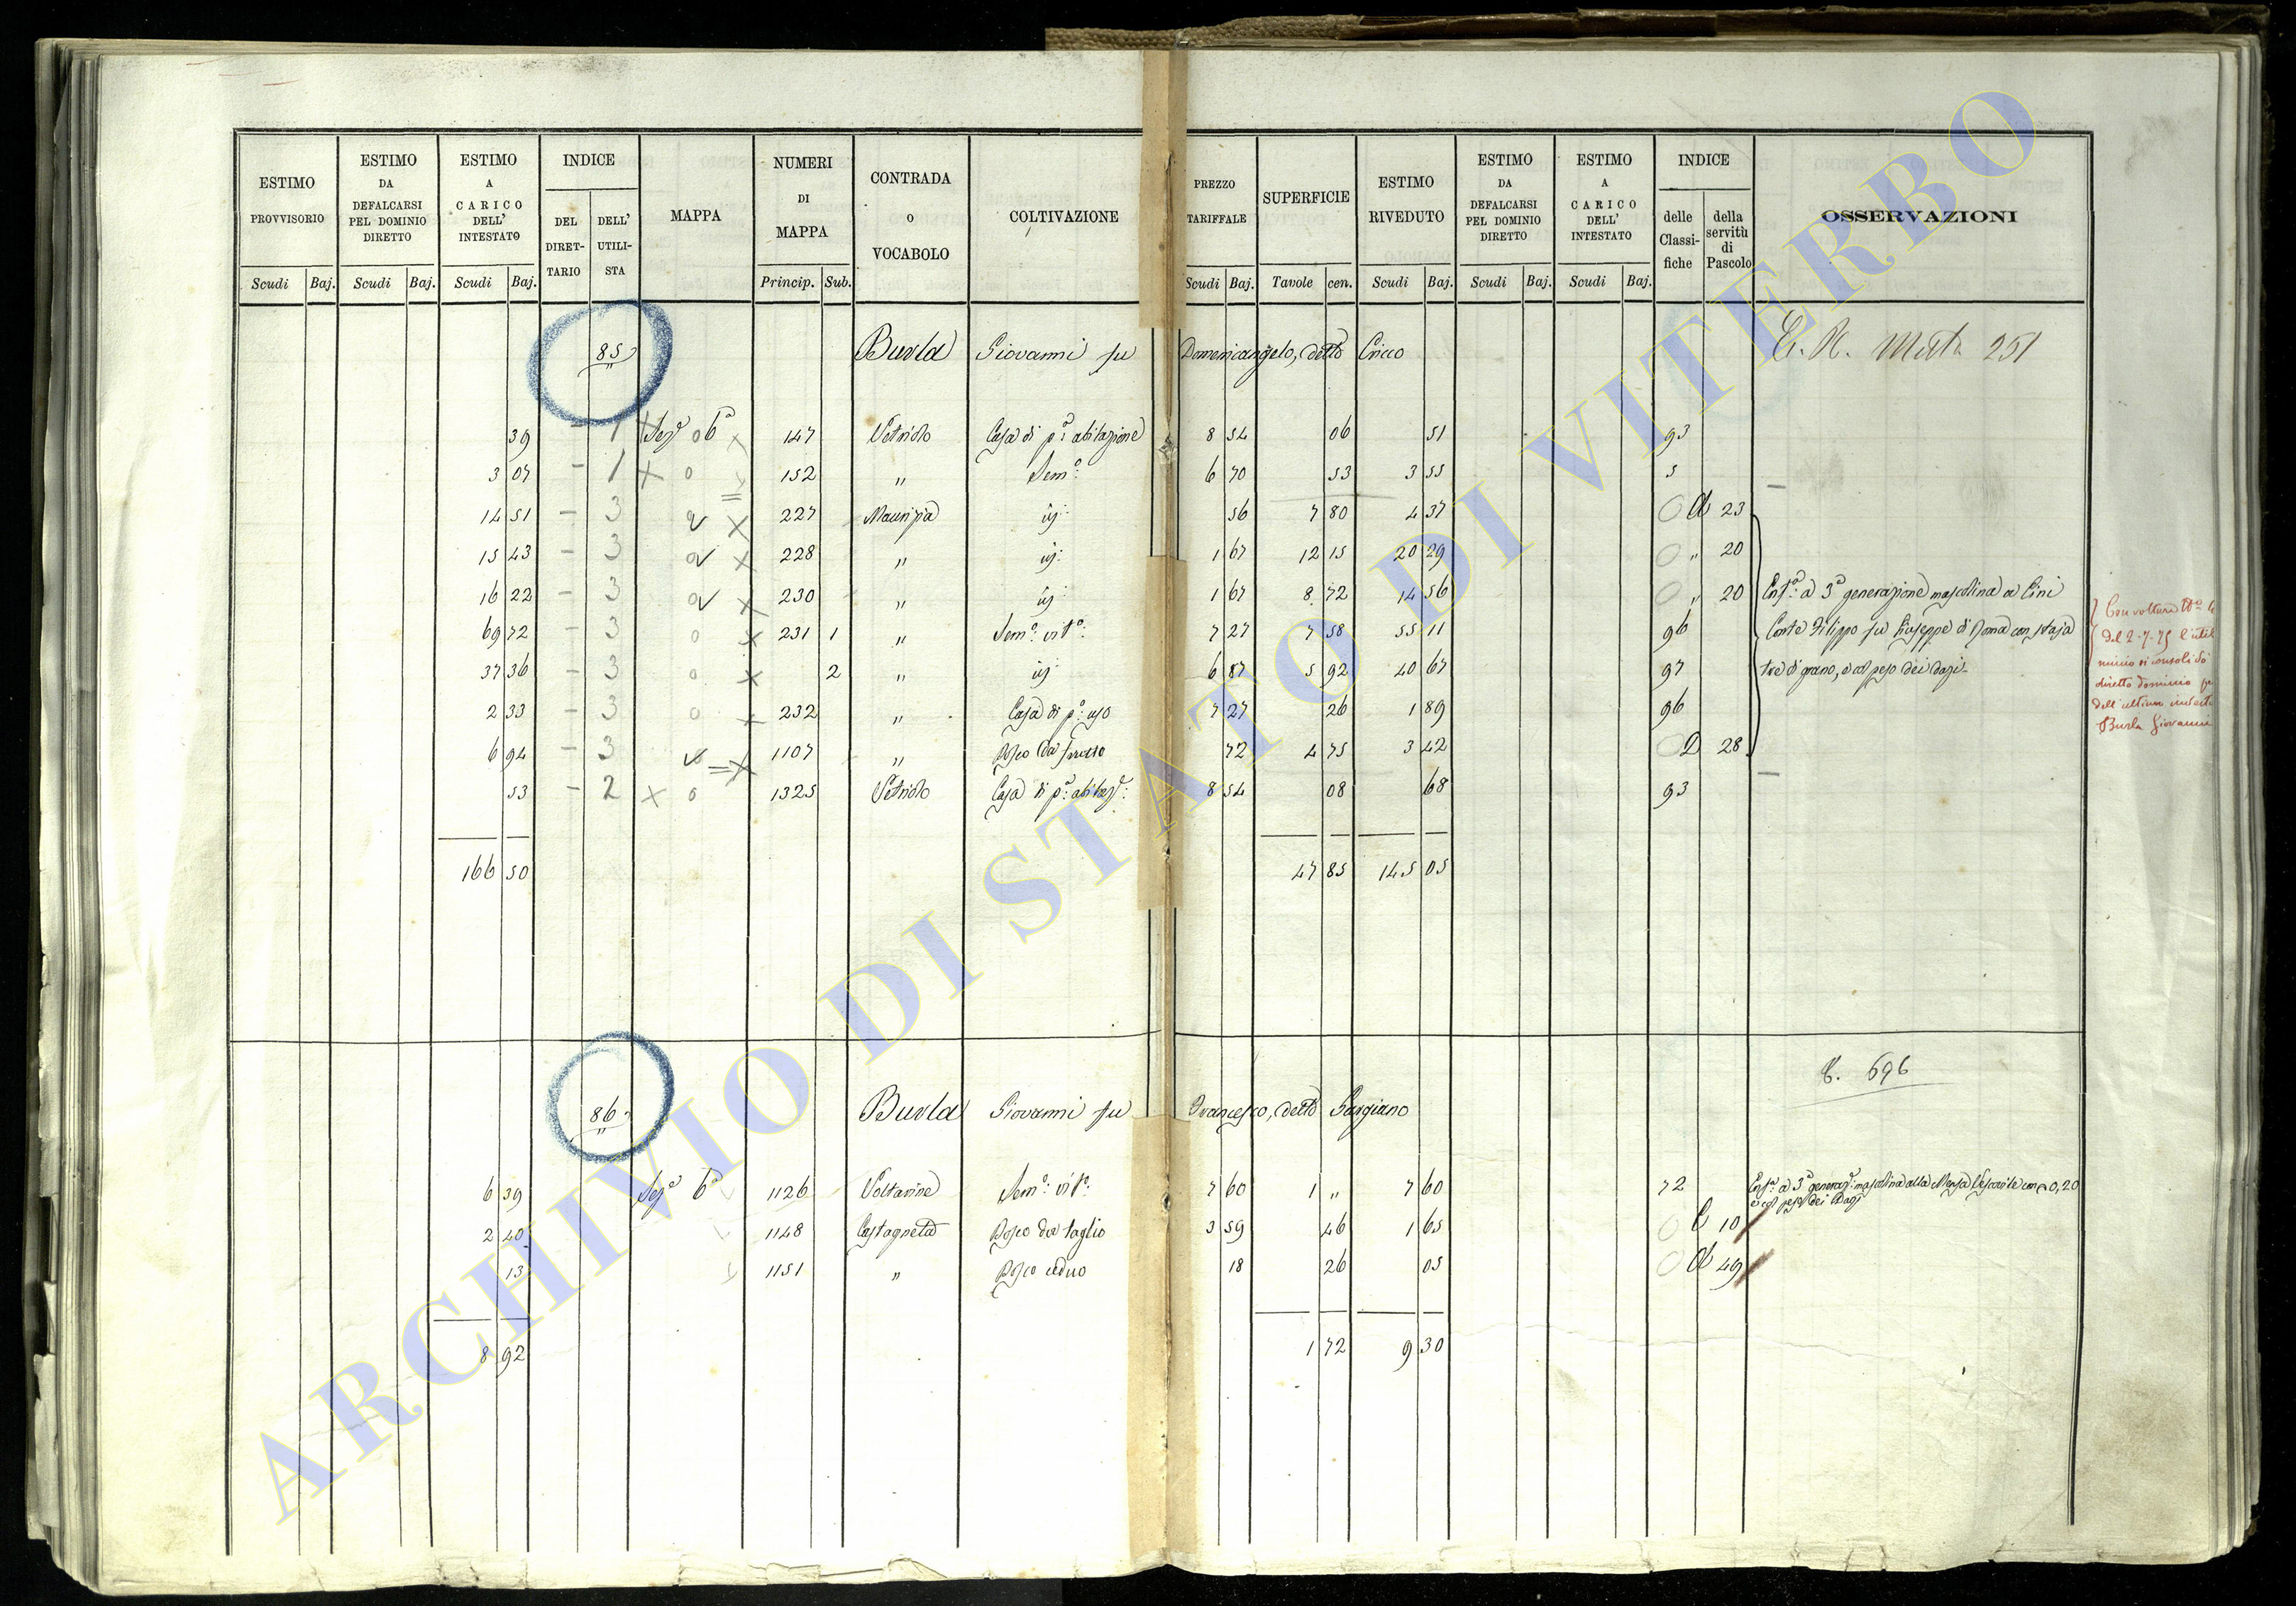 ESTIMO PROVVISORIO | ESTIMO DA DEFALCARSI PEL DOMINIO DIRETTO | ESTIMO A CARICO DELL' INTESTATO | INDICE DEL DIRETTARIO | DELL' UTILISTA | MAPPA | NUMERI DI MAPPA | CONTRADA O VOCABOLO | COLTIVAZIONE | PREZZO TARIFFALE | SUPERFICIE | ESTIMO RIVEDUTO | ESTIMO DA DEFALCARSI PEL DOMINIO DIRETTO | ESTIMO A CARICO DELL' INTESTATO | INDICE delle Classifiche | della servitù di Pascolo | OSSERVAZIONI
Scudi Baj. Scudi Baj. Scudi Baj. Princip. Sub. Scudi Baj. Tavole cen. Scudi Baj. Scudi Baj. Scudi Baj.
85 Burla Giovanni fu Domenicangelo, detto Cricco
251
39 - 1 Sez.e 6a 147 Vetriolo Casa di p.a abitazione 8 54 06 51 93
3 07 - 1 152 " Sem.o 6 70 53 3 55 5
14 51 - 3 227 id: 56 7 80 4 37 A 23
15 43 - 3 228 " id: 1 67 12 15 20 29 " 20
16 22 - 3 230 " id: 1 67 8 72 14 56 " 20 Enf.a a 3a generazione mascolina a Cini
69 72 - 3 231 1 " Sem.o vit.o 7 27 7 58 55 11 96 Conte Filippo fu Giuseppe di Roma con staja
37 36 - 3 2 " id 6 87 5 92 40 67 97 tre di grano, e col peso dei dazi
2 33 - 3 232 " Casa di p.o uso 7 27 26 1 89 96
6 94 - 3 1107 " Bosco da frutto 72 4 75 3 42 D 28
53 - 2 1325 Vetriolo Casa di p.a abitaz.e 8 54 08 68 93
Con voltura
del 2-7-75 l'util
minio si consolidò
diretto dominio
dell'ultimo intest
Burla Giovanni
166 50 47 85 145 05
696
86 Burla Giovanni fu Francesco, detto Gargiano
6 39 Sez.e 6a 1126 Voltarine Sem.o vit.o 7 60 1 " 7 60 72 Enf.a a 3a generaz.e mascolina alla Mensa Vescovile con 0,20
e col peso dei Dazj
2 40 1148 Castagneta Bosco da taglio 3 59 46 1 65 C 10
13 1151 " Bosco ceduo 18 26 05 A 49
8 92 1 72 9 30
ARCHIVIO DI STATO DI VITERBO